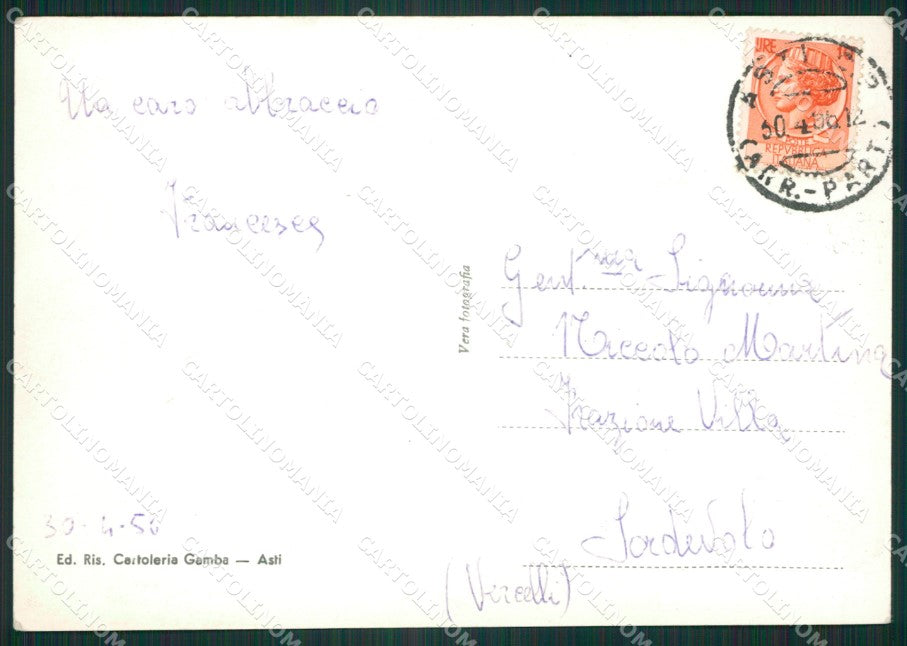 Un caro abbraccio
Francesca
30-4-56
Ed. Ris. Cartoleria Gamba — Asti
Vera fotografia
LIRE
POSTE
REPVBBLICA
ITALIANA
ASTI
30.4.56.12
ARR.-PART.
Gent.ma Signorina
Niccolo Martina
Frazione Villa
Sordevolo
(Vercelli)
CARTOLINOMANIA